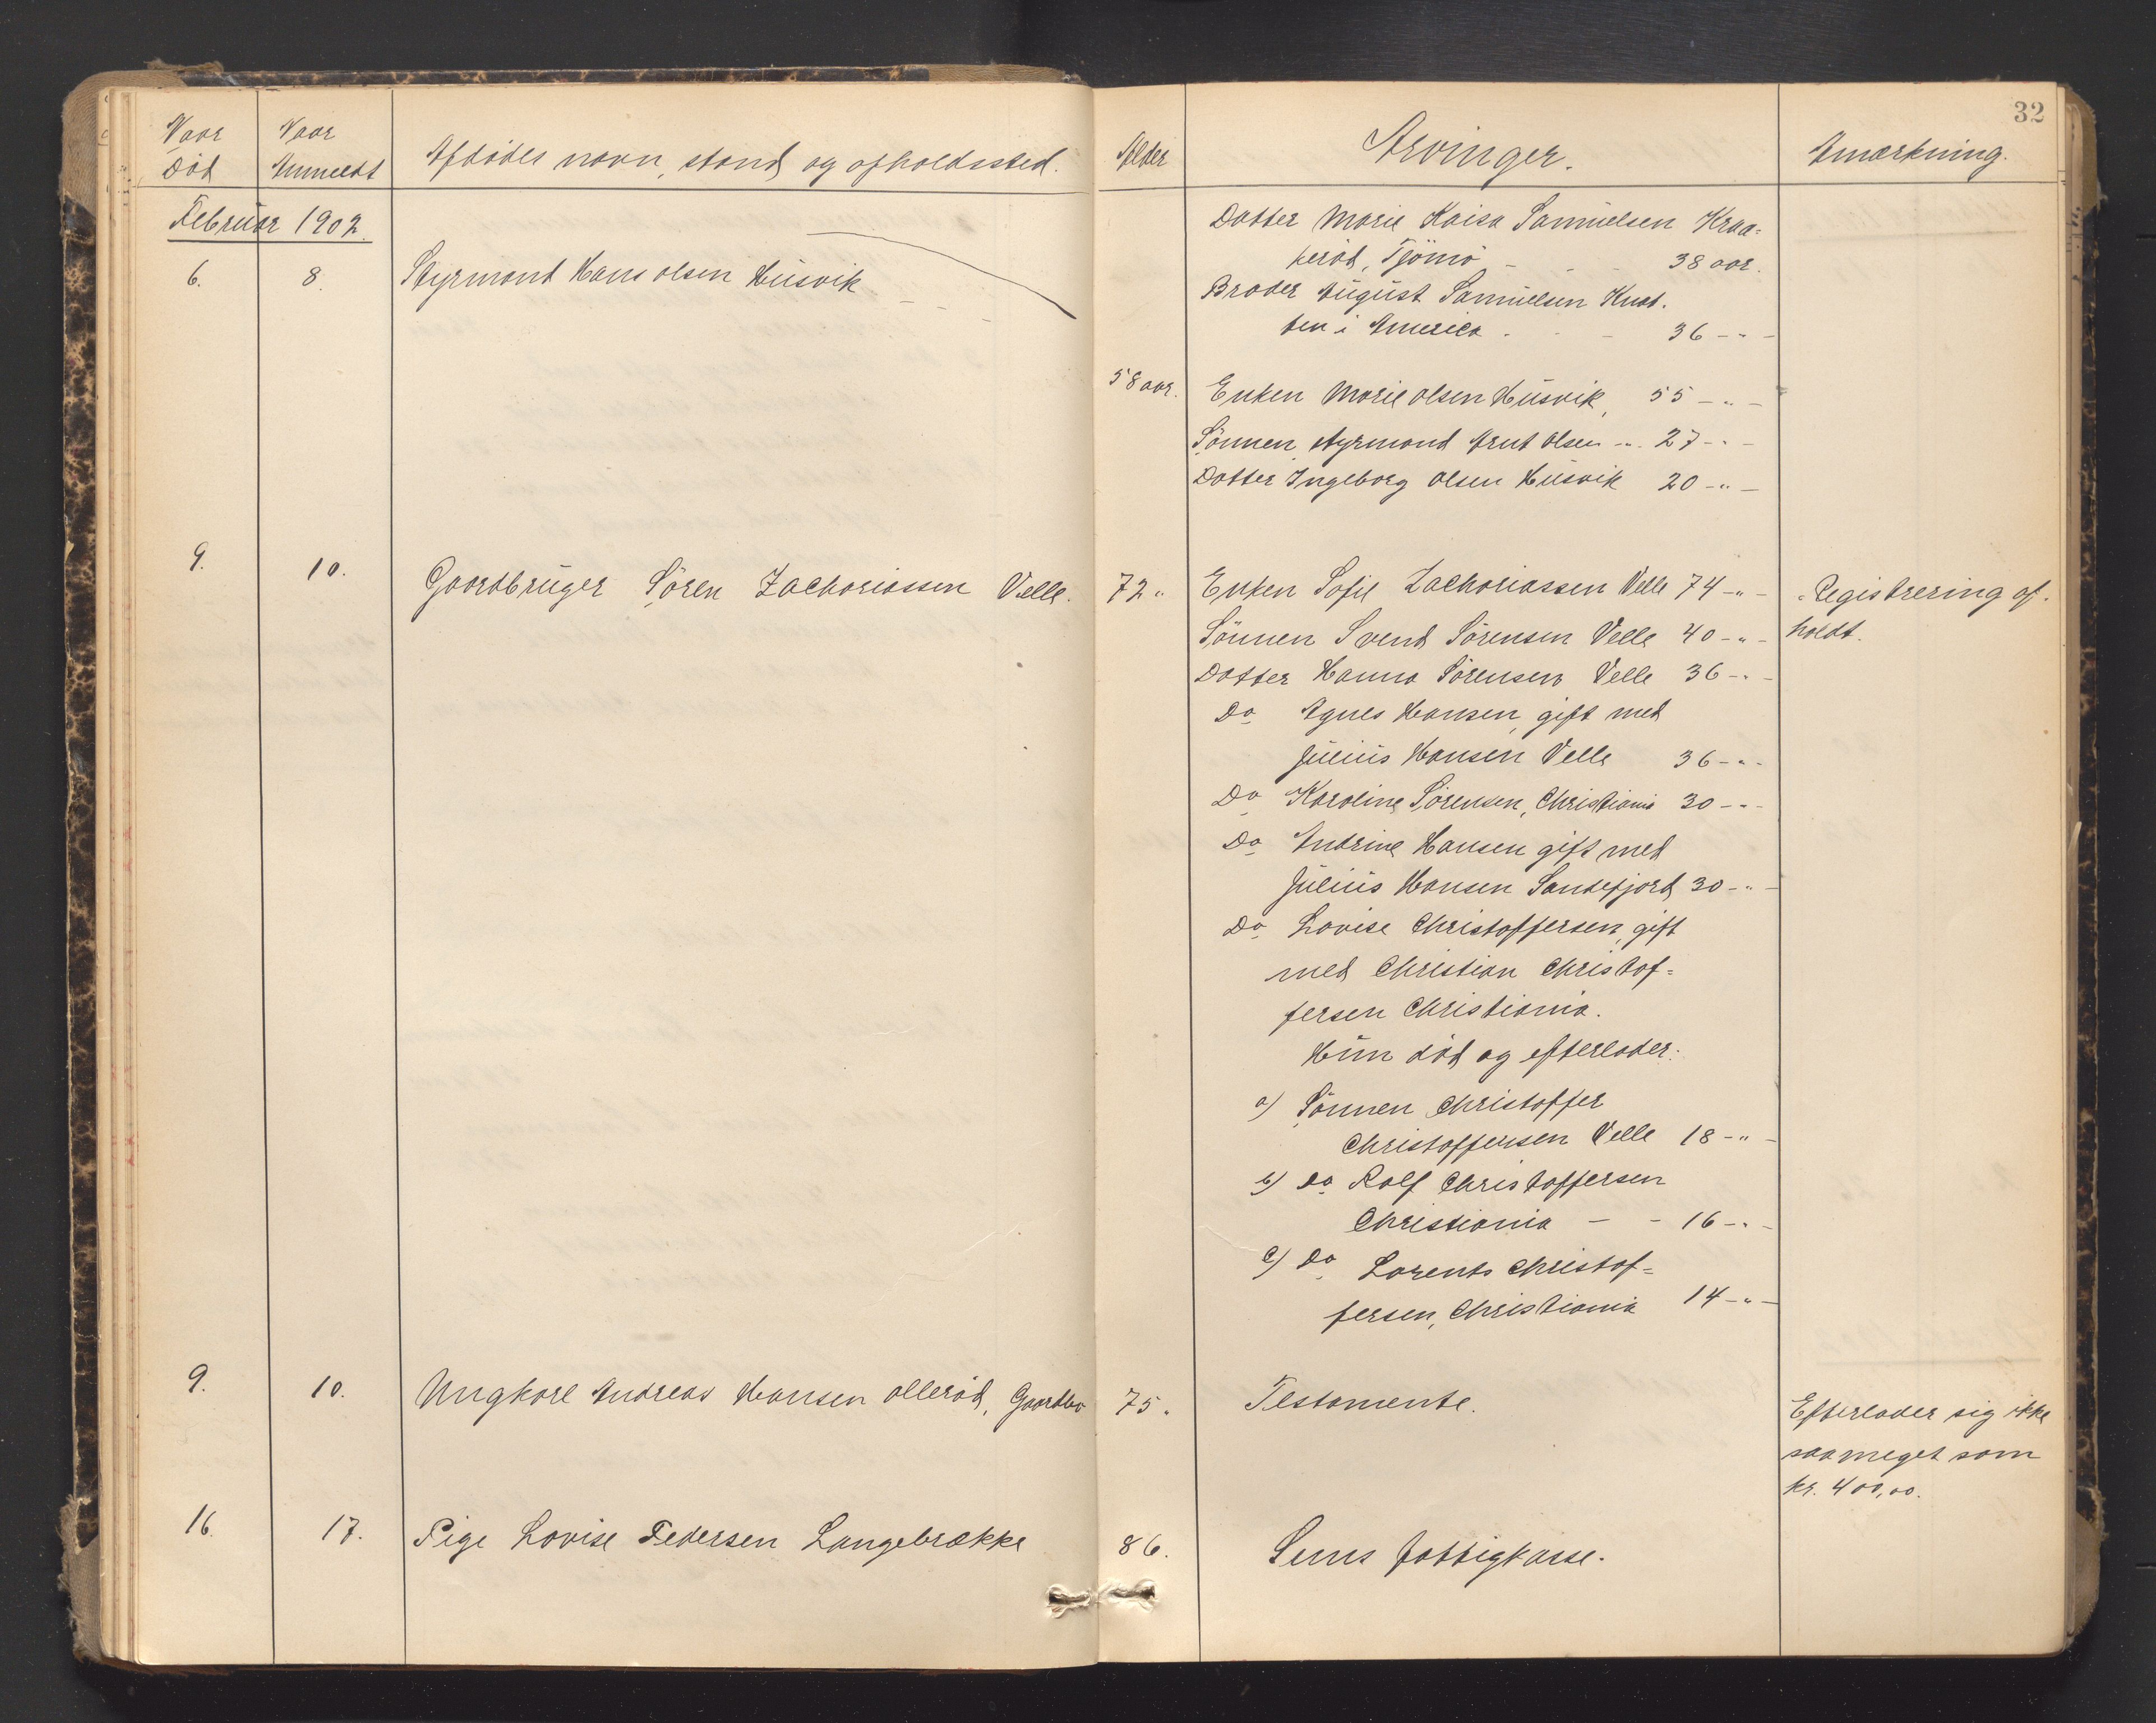 32
Naar Død
Naar Anmeldt
Afdødes navn, stand og opholdssted.
Alder
Arvinger.
Anmærkning.
Februar 1902.
Datter Marie Kaisa Samuelsen Kraa=
kerød, Tjømø - - - 38 aar.
Broder August Samuelsen Knat.
ten i America . - - 36 - " -
6. 8. Styrmand Hans Olsen Husvik - - -
58 aar. Enken Marie Olsen Husvik, 55 - " -
Sønnen styrmand Arnt Olsen - " - 27 - " -
Datter Ingeborg Olsen Husvik 20 - " -
9. 10. Gaardbruger Søren Zachariassen Velle. 72 " Enken Sofie Zachariassen Velle 74 - " - Registrering af-
Sønnen Svend Sørensen Velle 40 - " - holdt.
Datter Hanna Sørensen Velle 36 - " -
Do Agnes Hansen, gift med
Julius Hansen Velle 36 - " -
Do Karoline Sørensen, Christiania 30 - " -
Do Andrine Hansen gift med
Julius Hansen Sandefjord 30 - " -
Do Lovise Christoffersen, gift
med Christian Christof=
fersen Christiania.
Hun død og efterlader:
a) Sønnen Christoffer
Christoffersen Velle 18 - " -
b) do Rolf Christoffersen
Christiania - - 16 - " -
c) Do Lorents Christof=
fersen, Christiania 14 - " -
9. 10. Ungkarl Andreas Hansen Ollerød, Gaardbr 75 " Testamente. Efterlader sig ikke
saameget som
kr. 400,00.
16. 17. Pige Lovise Pedersen Langebrække 86. Sems fattigkasse.